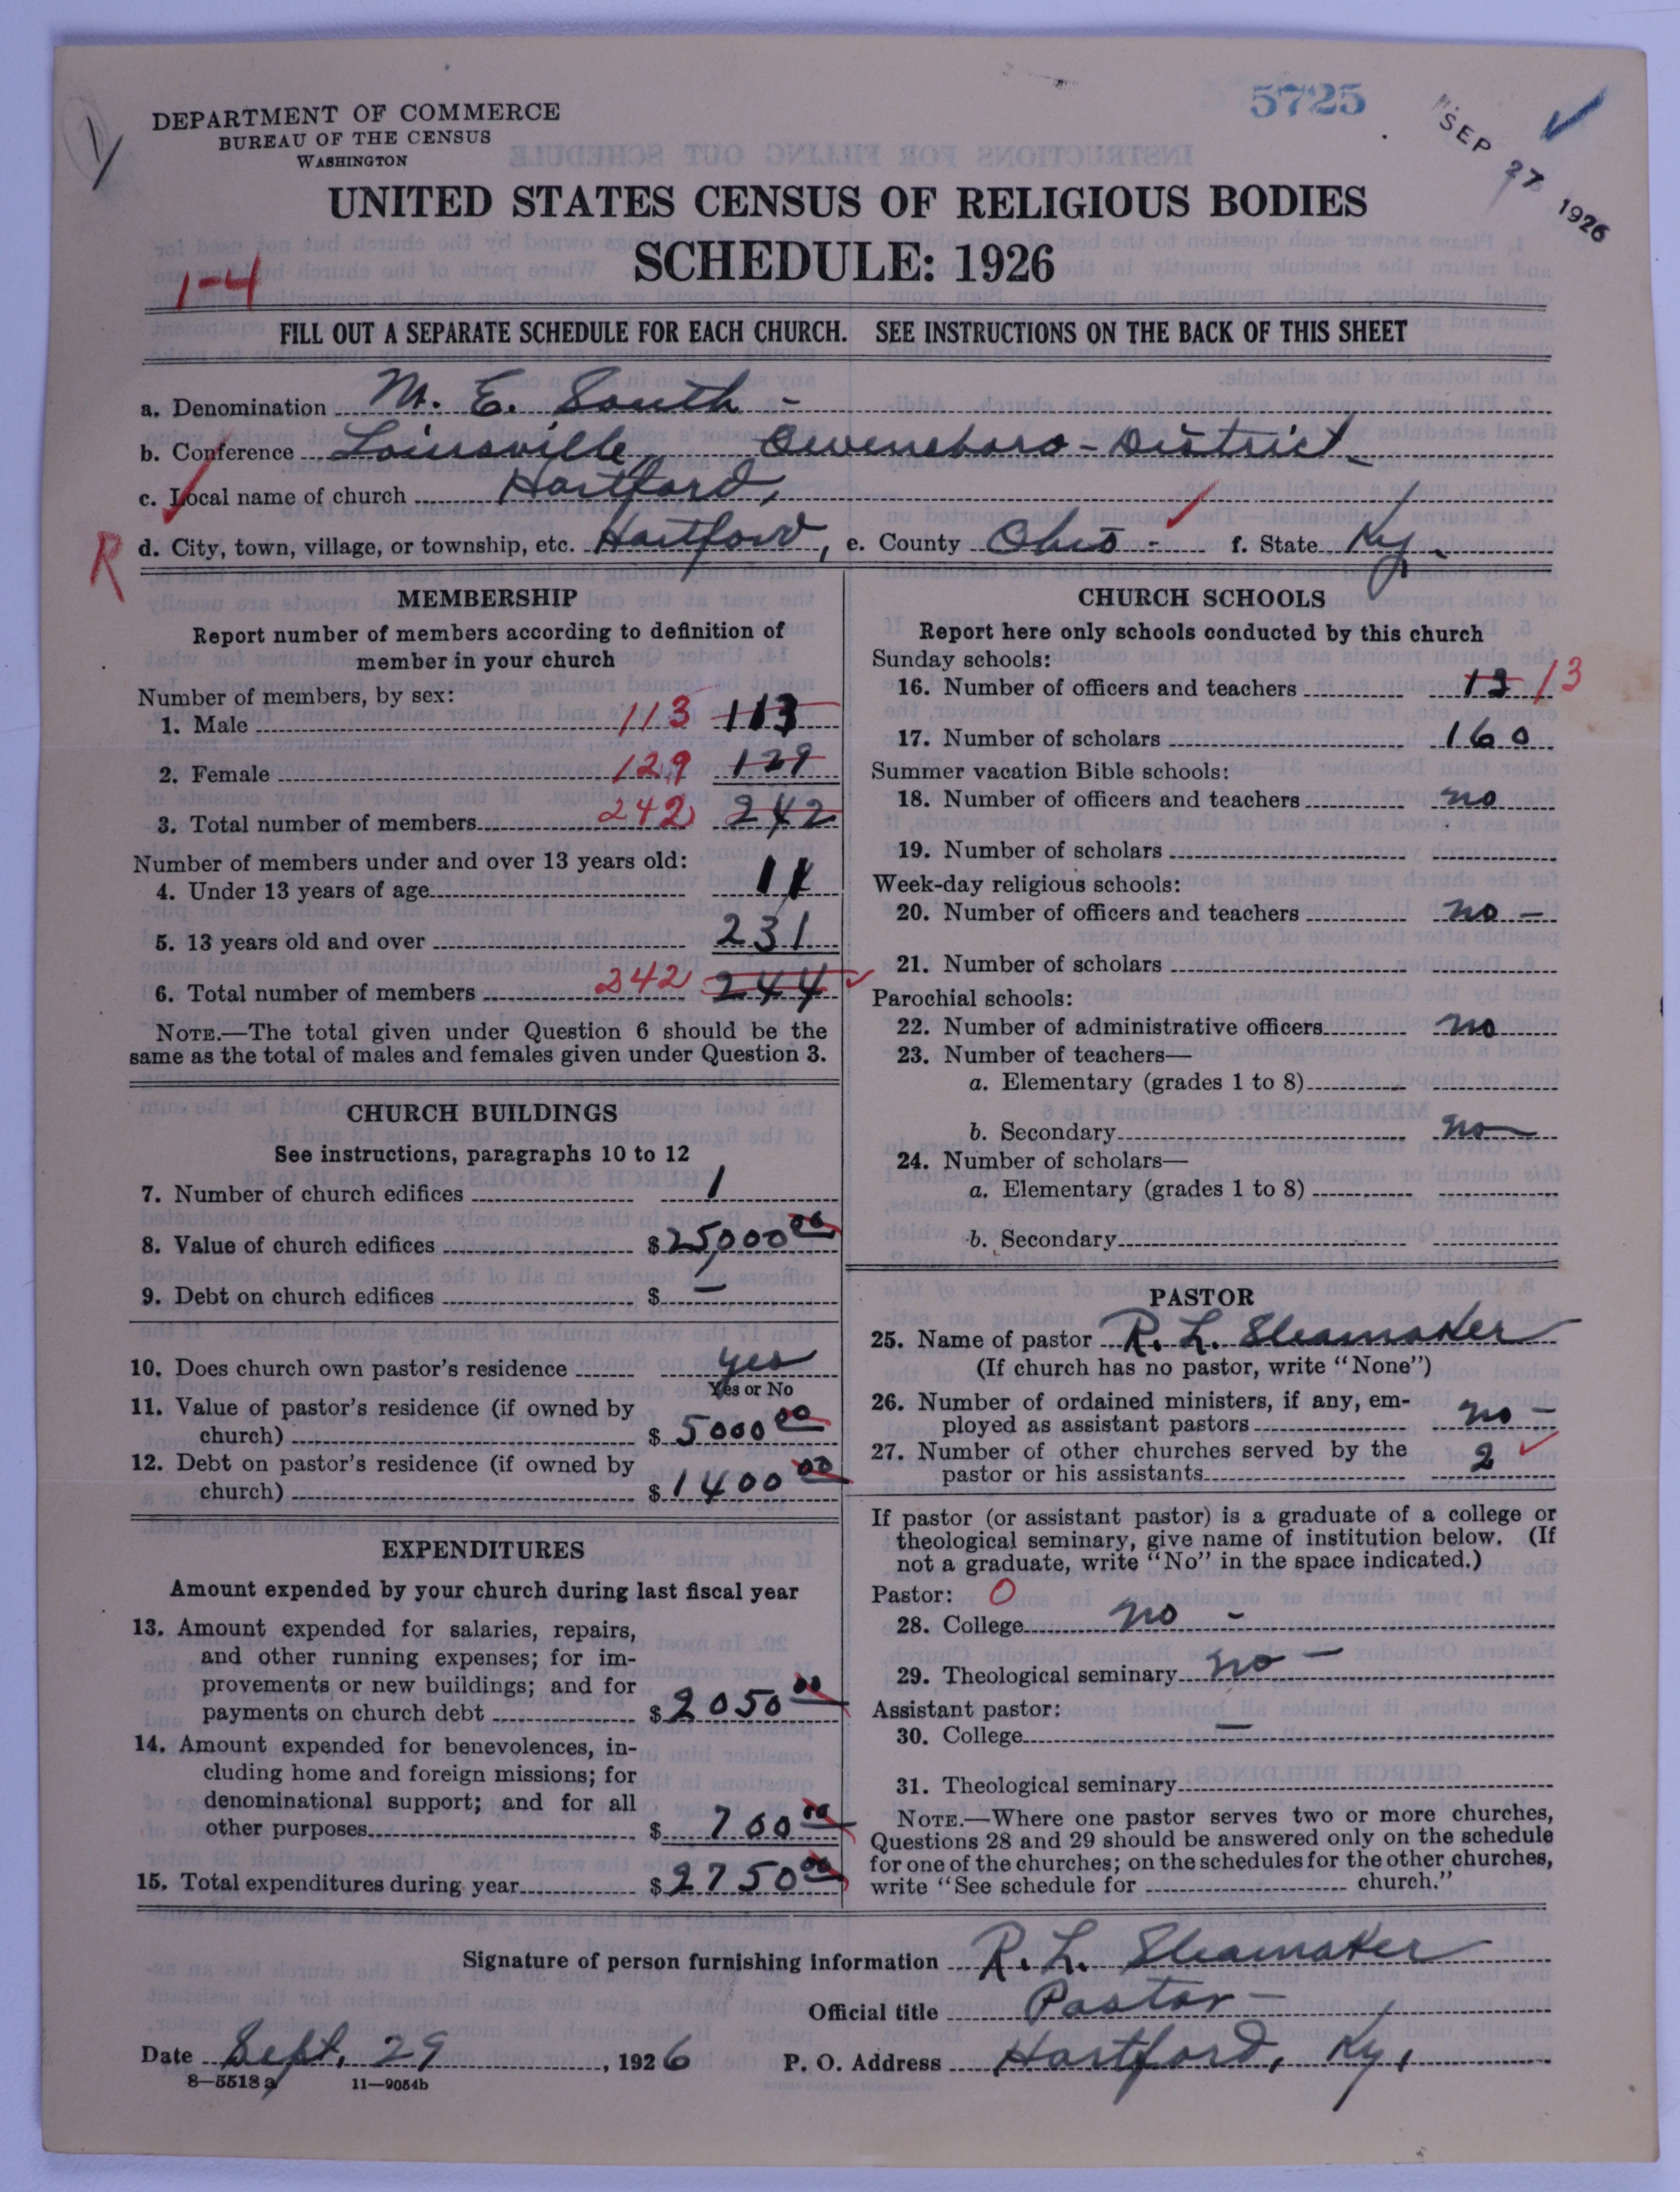 5725
SEP 27 1926
DEPARTMENT OF COMMERCE
BUREAU OF THE CENSUS
WASHINGTON
UNITED STATES CENSUS OF RELIGIOUS BODIES
SCHEDULE: 1926
1-4
FILL OUT A SEPARATE SCHEDULE FOR EACH CHURCH. SEE INSTRUCTIONS ON THE BACK OF THIS SHEET
a. Denomination M. E. South -
b. Conference Louisville Owensboro - District
c. Local name of church Hartford,
R d. City, town, village, or township, etc. Hartford, e. County Ohio - f. State Ky.
MEMBERSHIP
Report number of members according to definition of
member in your church
Number of members, by sex:
1. Male 113 113
2. Female 129 129
3. Total number of members 242 242
Number of members under and over 13 years old:
4. Under 13 years of age 11
5. 13 years old and over 231
6. Total number of members 242 244
NOTE.—The total given under Question 6 should be the
same as the total of males and females given under Question 3.
CHURCH BUILDINGS
See instructions, paragraphs 10 to 12
7. Number of church edifices 1
8. Value of church edifices $25,000 00
9. Debt on church edifices $ —
10. Does church own pastor's residence yes
Yes or No
11. Value of pastor's residence (if owned by
church) $5000 00
12. Debt on pastor's residence (if owned by
church) $1400 00
EXPENDITURES
Amount expended by your church during last fiscal year
13. Amount expended for salaries, repairs,
and other running expenses; for im-
provements or new buildings; and for
payments on church debt $2050 00
14. Amount expended for benevolences, in-
cluding home and foreign missions; for
denominational support; and for all
other purposes $700 00
15. Total expenditures during year $2750 00
CHURCH SCHOOLS
Report here only schools conducted by this church
Sunday schools:
16. Number of officers and teachers 13 13
17. Number of scholars 160
Summer vacation Bible schools:
18. Number of officers and teachers no
19. Number of scholars
Week-day religious schools:
20. Number of officers and teachers no —
21. Number of scholars
Parochial schools:
22. Number of administrative officers no
23. Number of teachers—
a. Elementary (grades 1 to 8)
b. Secondary no
24. Number of scholars—
a. Elementary (grades 1 to 8)
b. Secondary
PASTOR
25. Name of pastor R. L. Sleamaker
(If church has no pastor, write "None")
26. Number of ordained ministers, if any, em-
ployed as assistant pastors no —
27. Number of other churches served by the
pastor or his assistants 2
If pastor (or assistant pastor) is a graduate of a college or
theological seminary, give name of institution below. (If
not a graduate, write "No" in the space indicated.)
Pastor: O
28. College no -
29. Theological seminary no —
Assistant pastor:
30. College —
31. Theological seminary
NOTE.—Where one pastor serves two or more churches,
Questions 28 and 29 should be answered only on the schedule
for one of the churches; on the schedules for the other churches,
write "See schedule for church."
Signature of person furnishing information R. L. Sleamaker
Official title Pastor -
Date Sept. 29, 1926 P. O. Address Hartford, Ky.
8—5518 a 11—9054b